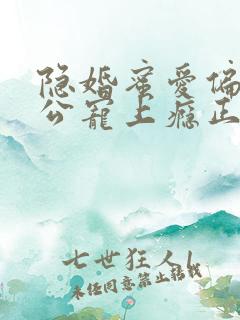 隐婚蜜爱偏
公宠上瘾正
七世狂人l
未经同意禁止转载